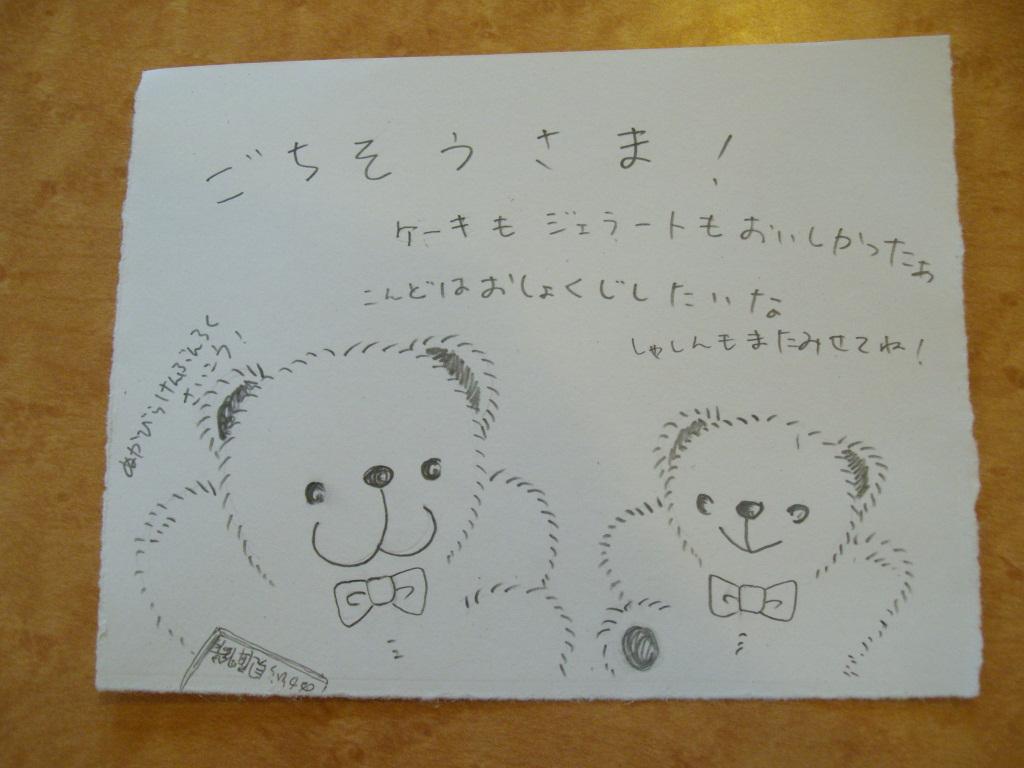 ごちそうさま!
ケーキもジェラートもおいしかったぁ
こんどはおしょくじしたいな
しゃしんもまたみせてね!
ぬかびらげんせんろし
さいこう!